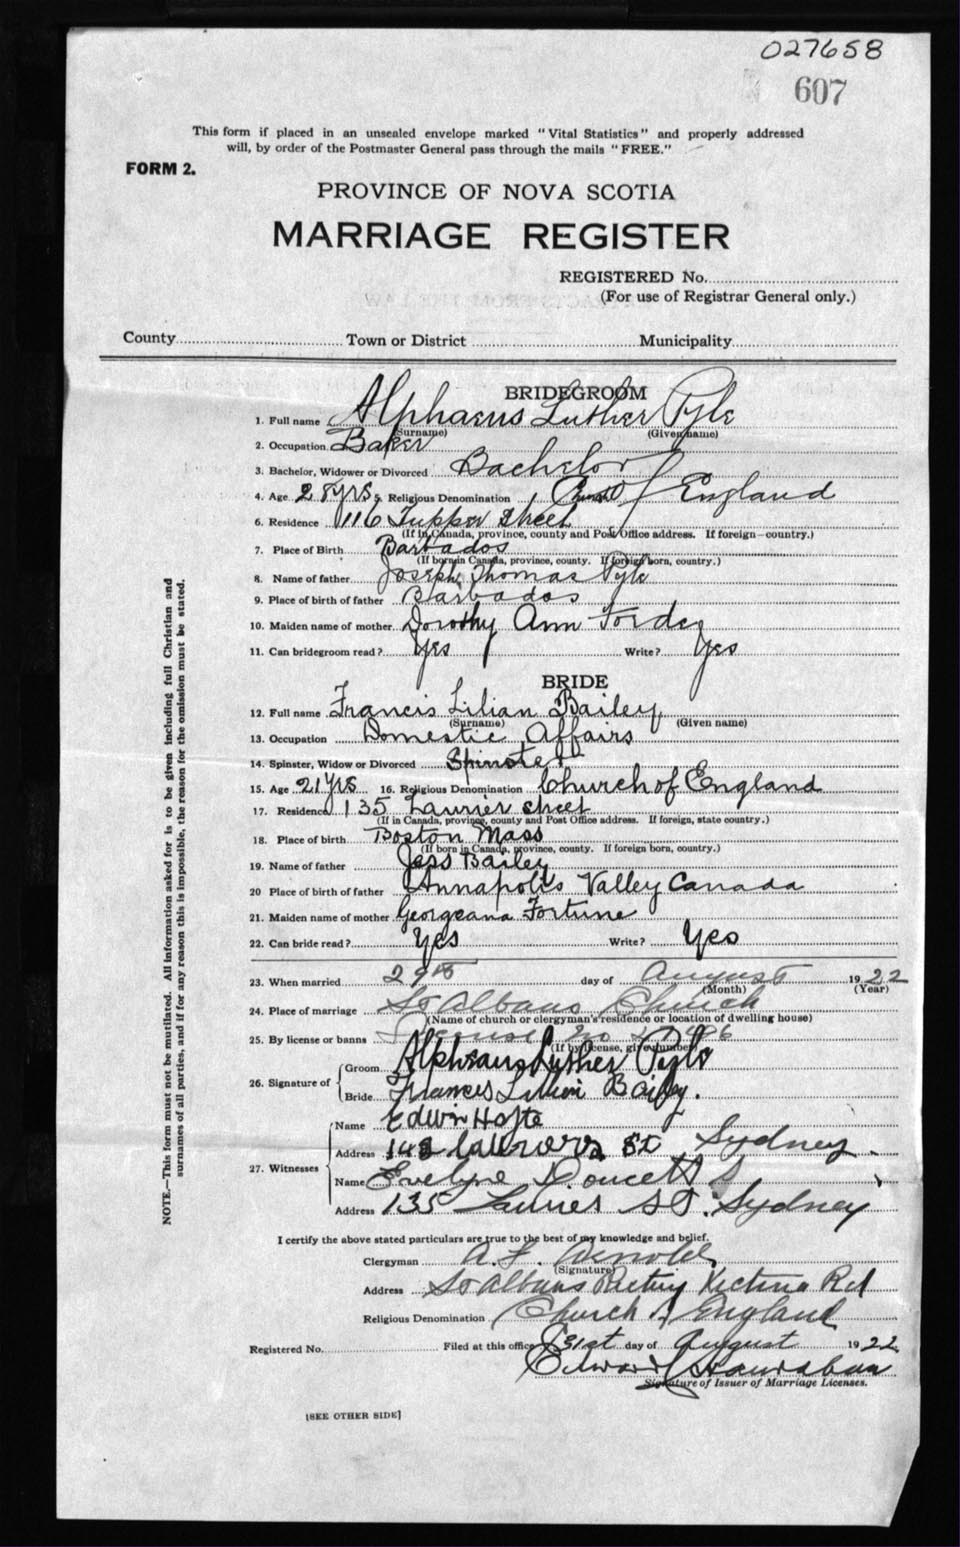 027658
607
This form if placed in an unsealed envelope marked "Vital Statistics" and properly addressed
will, by order of the Postmaster General pass through the mails "FREE."
FORM 2.
PROVINCE OF NOVA SCOTIA
MARRIAGE REGISTER
REGISTERED No.
(For use of Registrar General only.)
County Town or District Municipality
BRIDEGROOM
1. Full name Alphaeus Luther Pyle
(Surname) (Given name)
2. Occupation Baker
3. Bachelor, Widower or Divorced Bachelor
4. Age 28 yrs 5. Religious Denomination Church of England
6. Residence 116 Tupper Street
(If in Canada, province, county and Post Office address. If foreign country.)
7. Place of Birth Barbados
(If born in Canada, province, county. If foreign born, country.)
8. Name of father Joseph Thomas Pyle
9. Place of birth of father Barbados
10. Maiden name of mother Dorothy Ann Forde
11. Can bridegroom read? Yes Write? Yes
BRIDE
12. Full name Francis Lilian Bailey
(Surname) (Given name)
13. Occupation Domestic Affairs
14. Spinster, Widow or Divorced Spinster
15. Age 21 yrs 16. Religious Denomination Church of England
17. Residence 135 Laurier street
(If in Canada, province, county and Post Office address. If foreign, state country.)
18. Place of birth Boston Mass
(If born in Canada, province, county. If foreign born, country.)
19. Name of father Jess Bailey
20 Place of birth of father Annapolis Valley Canada
21. Maiden name of mother Georgeana Fortune
22. Can bride read? Yes Write? Yes
23. When married 29th day of August 1922
(Month) (Year)
24. Place of marriage St Albans Church
(Name of church or clergyman's residence or location of dwelling house)
25. By license or banns License No
(If by license, give number)
26. Signature of Groom Alphaeus Luther Pyle
Bride Frances Lillian Bailey.
27. Witnesses Name Edwin Hoyte
Address St Sydney
Name Evelyne Doucett
Address 135 Laurier St. Sydney
I certify the above stated particulars are true to the best of my knowledge and belief.
Clergyman A. F. Arnold
(Signature)
Address St Albans Rectory Victoria Rd
Religious Denomination Church of England
Registered No. Filed at this office 31st day of August 1922
Edward
Signature of Issuer of Marriage Licenses.
[SEE OTHER SIDE]
NOTE.—This form must not be mutilated. All information asked for is to be given including full Christian and
surnames of all parties, and if for any reason this is impossible, the reason for the omission must be stated.